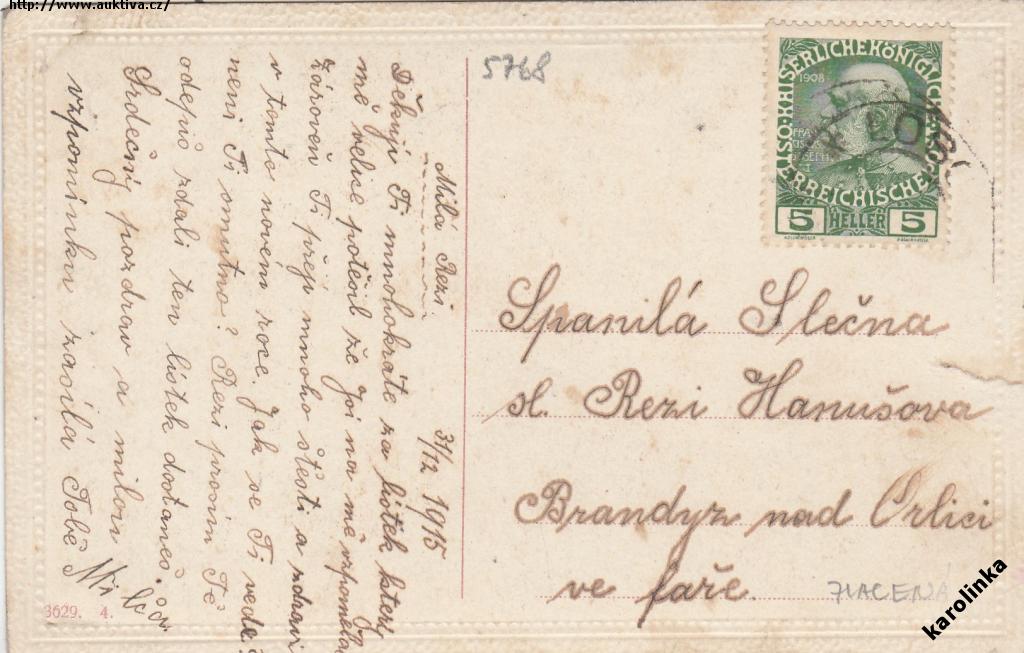 http://www.auktiva.cz/
5768
1908
5 HELLER 5
Milá Rezi 31/12 1915
Děkuji Ti mnohokráte za lístek kterým
mě velice potěšil že jsi na mě vzpomněla
Zároveň Ti přeji mnoho štěstí a zdraví
v tomto novém roce. Jak se Ti vede
není Ti smutno? Rezi prosím Tě
odepiš zdali ten lístek dostaneš.
Srdečný pozdrav a milou
vzpomínku zasílá Tobě
Spanilá Slečna
sl. Rezi Hanušova
Brandýz nad Orlici
ve faře.
ZLACENÁ
3629. 4.
karolinka